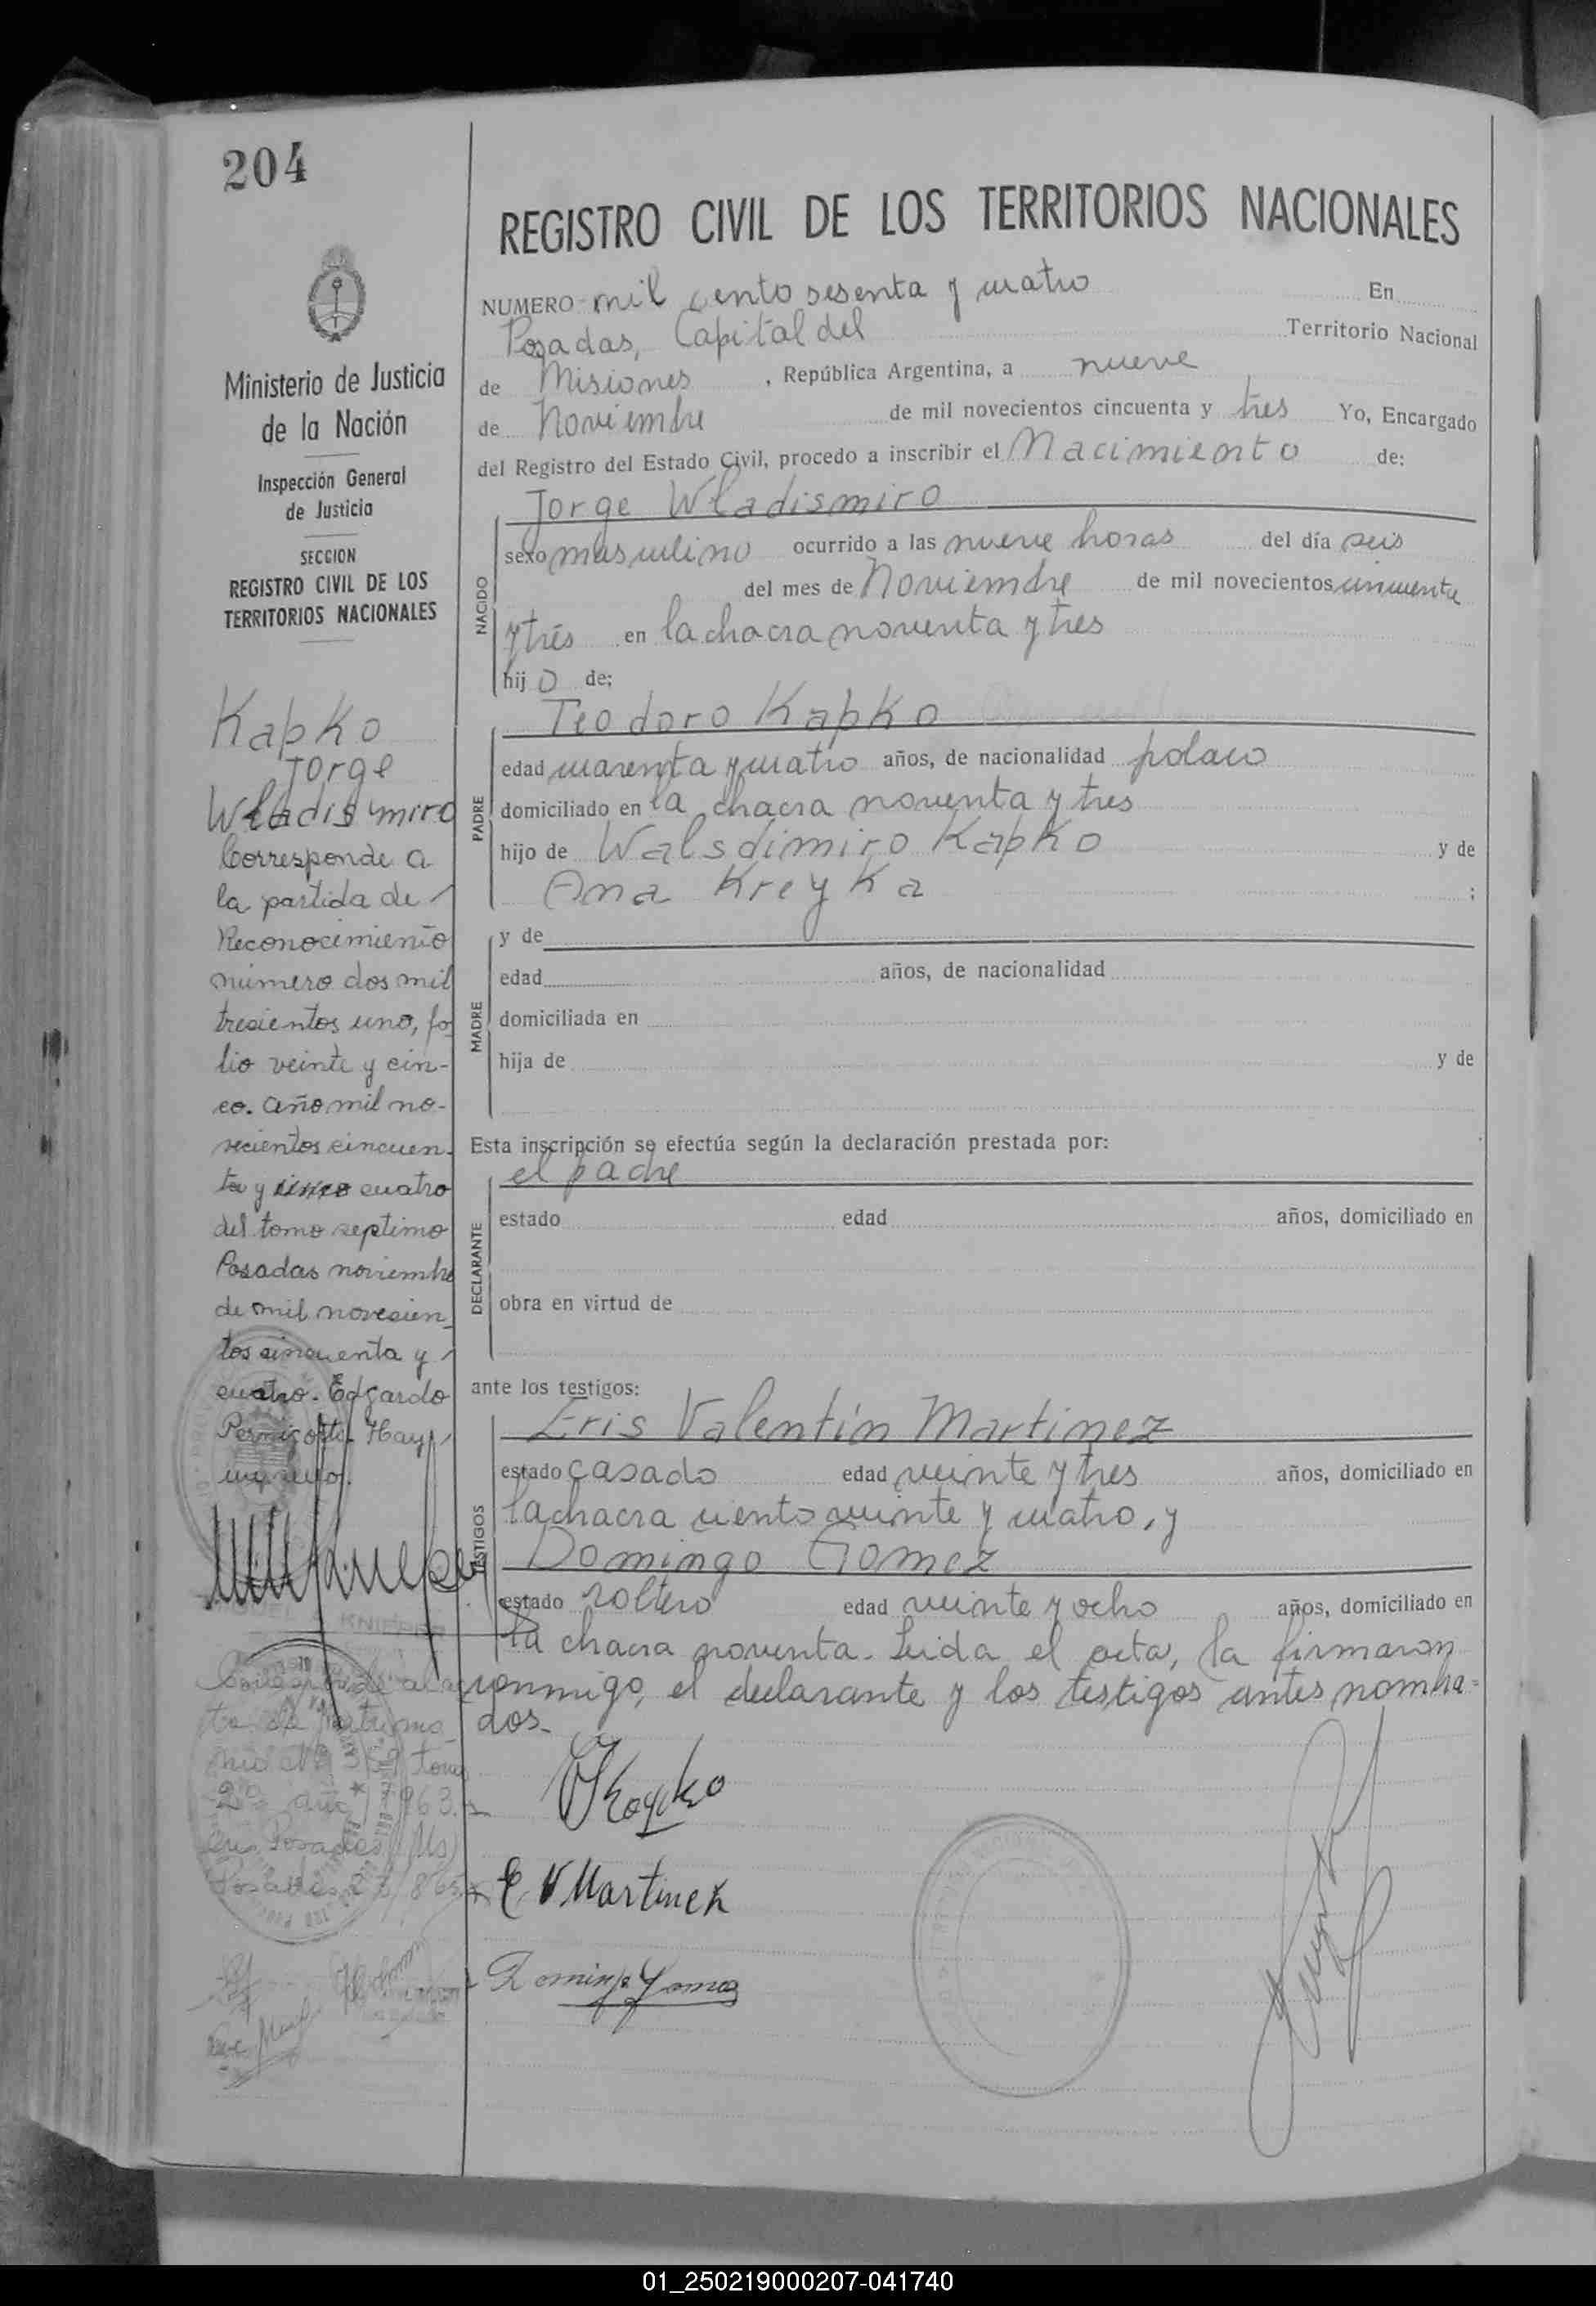 204
REGISTRO CIVIL DE LOS TERRITORIOS NACIONALES
Ministerio de Justicia
de la Nación
Inspección General
de Justicia
SECCION
REGISTRO CIVIL DE LOS
TERRITORIOS NACIONALES
Kapko
Jorge
Wladismiro
Corresponde a
la partida de
Reconocimiento
número dos mil
trecientos uno, fo
lio veinte y cin-
co. año mil no-
vecientos cincuen-
ta y cinco cuatro
del tomo septimo
Posadas noviembre
de mil novecien
tos cincuenta y
cuatro. Edgardo
Hay
NUMERO mil cento sesenta y cuatro En
Posadas, Capital del Territorio Nacional
de Misiones, República Argentina, a nueve
de Noviembre de mil novecientos cincuenta y tres Yo, Encargado
del Registro del Estado Civil, procedo a inscribir el Nacimiento de:
NACIDO
Jorge Wladismiro
sexo masculino ocurrido a las nueve horas del día seis
del mes de Noviembre de mil novecientos cincuenta
y trés en la chacra noventa y tres
hij o de:
PADRE
Teodoro Kapko
edad cuarenta y cuatro años, de nacionalidad polaco
domiciliado en la chacra noventa y tres
hijo de Walsdimiro Kapko y de
Ana Kreyka ;
MADRE
y de
edad años, de nacionalidad
domiciliada en
hija de y de
Esta inscripción se efectúa según la declaración prestada por:
DECLARANTE
el padre
estado edad años, domiciliado en
obra en virtud de
ante los testigos:
TESTIGOS
Eris Valentín Martinez
estado casado edad veinte y tres años, domiciliado en
la chacra ciento veinte y cuatro, y
Domingo Gomez
estado soltero edad veinte y ocho años, domiciliado en
la chacra noventa. Leida el acta, la firmaron
conmigo, el declarante y los testigos antes nombra=
dos.
E. V Martinez
Domingo Gomez
01_250219000207-041740